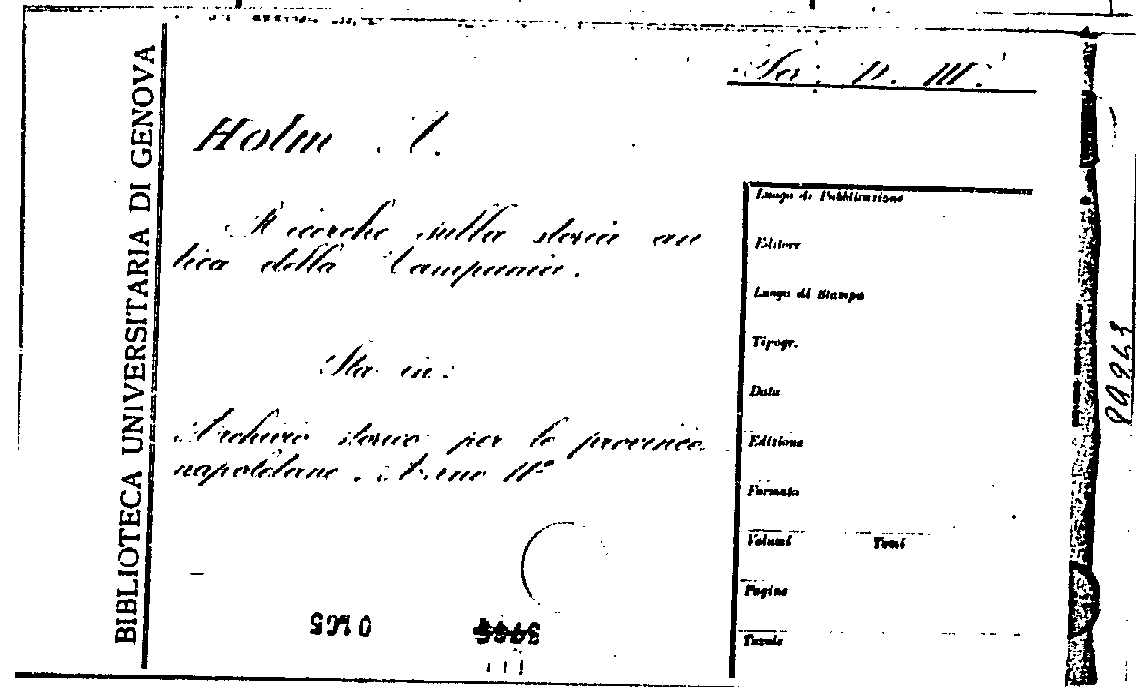 BIBLIOTECA UNIVERSITARIA DI GENOVA
Ser. D. III.
Holm A.
Ricerche sulla storia an
tica della Campania.
Sta in:
Archivio storico per le provincie
napoletane. Anno 11º
Luogo di Pubblicazione
Editore
Luogo di Stampa
Tipogr.
Data
Edizione
Formato
Volumi Tomi
Pagine
Tavole